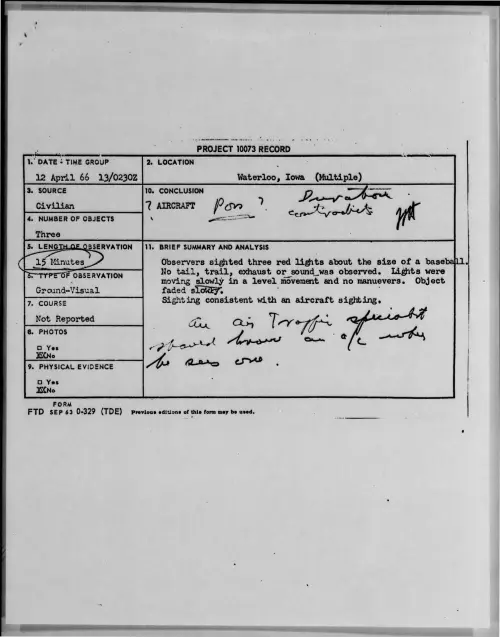 PROJECT 10073 RECORD
1. DATE - TIME GROUP
12 April 66 13/0230Z
2. LOCATION
Waterloo, Iowa (Multiple)
3. SOURCE
Civilian
10. CONCLUSION
? AIRCRAFT Poss ? Duration
contradicts
4. NUMBER OF OBJECTS
Three
5. LENGTH OF OBSERVATION
15 Minutes
11. BRIEF SUMMARY AND ANALYSIS
Observers sighted three red lights about the size of a baseball.
No tail, trail, exhaust or sound was observed. Lights were
moving slowly in a level movement and no manuevers. Object
faded slowly.
Sighting consistent with an aircraft sighting.
An air Traffic specialist
should know an a/c when
he sees one.
6. TYPE OF OBSERVATION
Ground-Visual
7. COURSE
Not Reported
8. PHOTOS
□ Yes
XXNo
9. PHYSICAL EVIDENCE
□ Yes
XXNo
FORM
FTD SEP 63 0-329 (TDE) Previous editions of this form may be used.